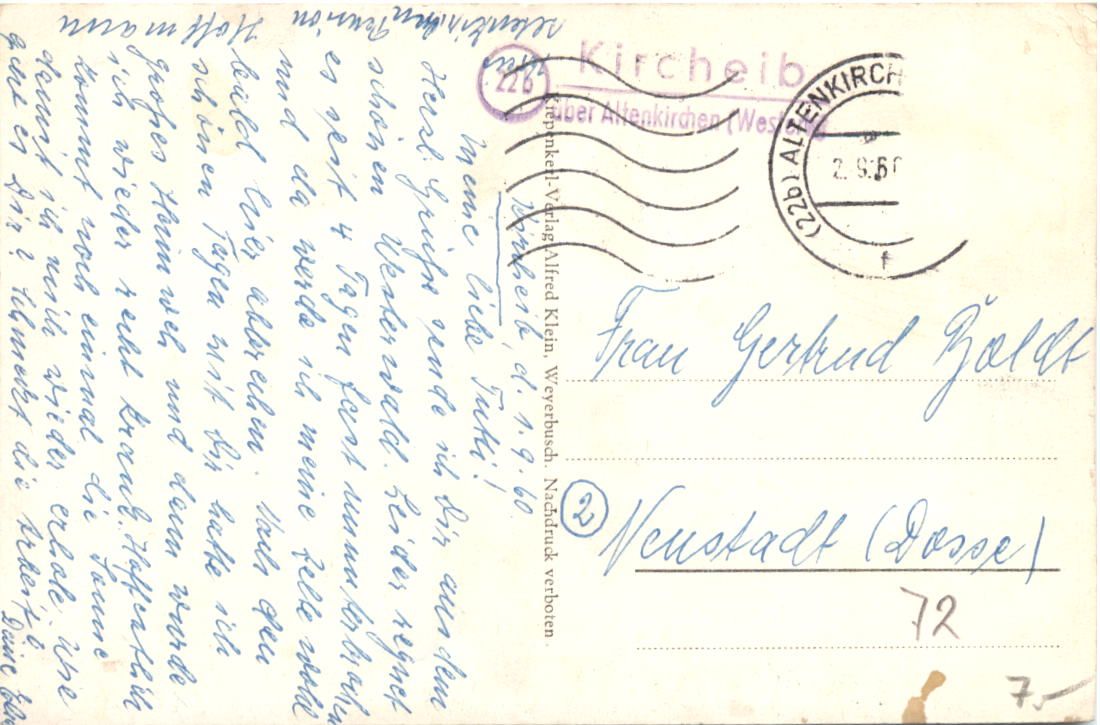 Kircheib
22b
über Altenkirchen (Westerw)
(22b) ALTENKIRCH
2. 9. 60
f
Altenkirchen Pension
Hoffmann
Kircheib, d. 1. 9. 60
Meine liebe Tuti!
Herzl. Grüße sende ich Dir aus dem
schönen Westerwald. Leider regnet
es seit 4 Tagen fast ununterbrochen
und da werde ich meine Zelte wohl
bald hier abbrechen. Nach den
schönen Tagen mit Dir hatte ich
großes Heimweh und dann wurde
ich wieder recht krank. Hoffentlich
kommt noch einmal die Sonne
damit ich mich wieder erhole. Wie
geht es Dir? Schmeckt die Arbeit?
Deine
Kiepenkerl-Verlag Alfred Klein, Weyerbusch. Nachdruck verboten.
Frau Gertrud Boldt
2
Neustadt (Dosse)
72
7,-